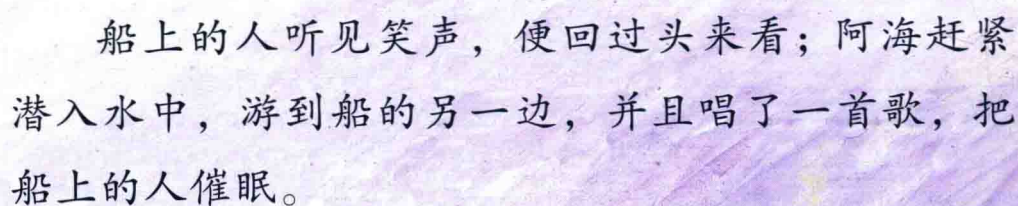 船上的人听见笑声，便回过头来看；阿海赶紧
潜入水中，游到船的另一边，并且唱了一首歌，把
船上的人催眠。